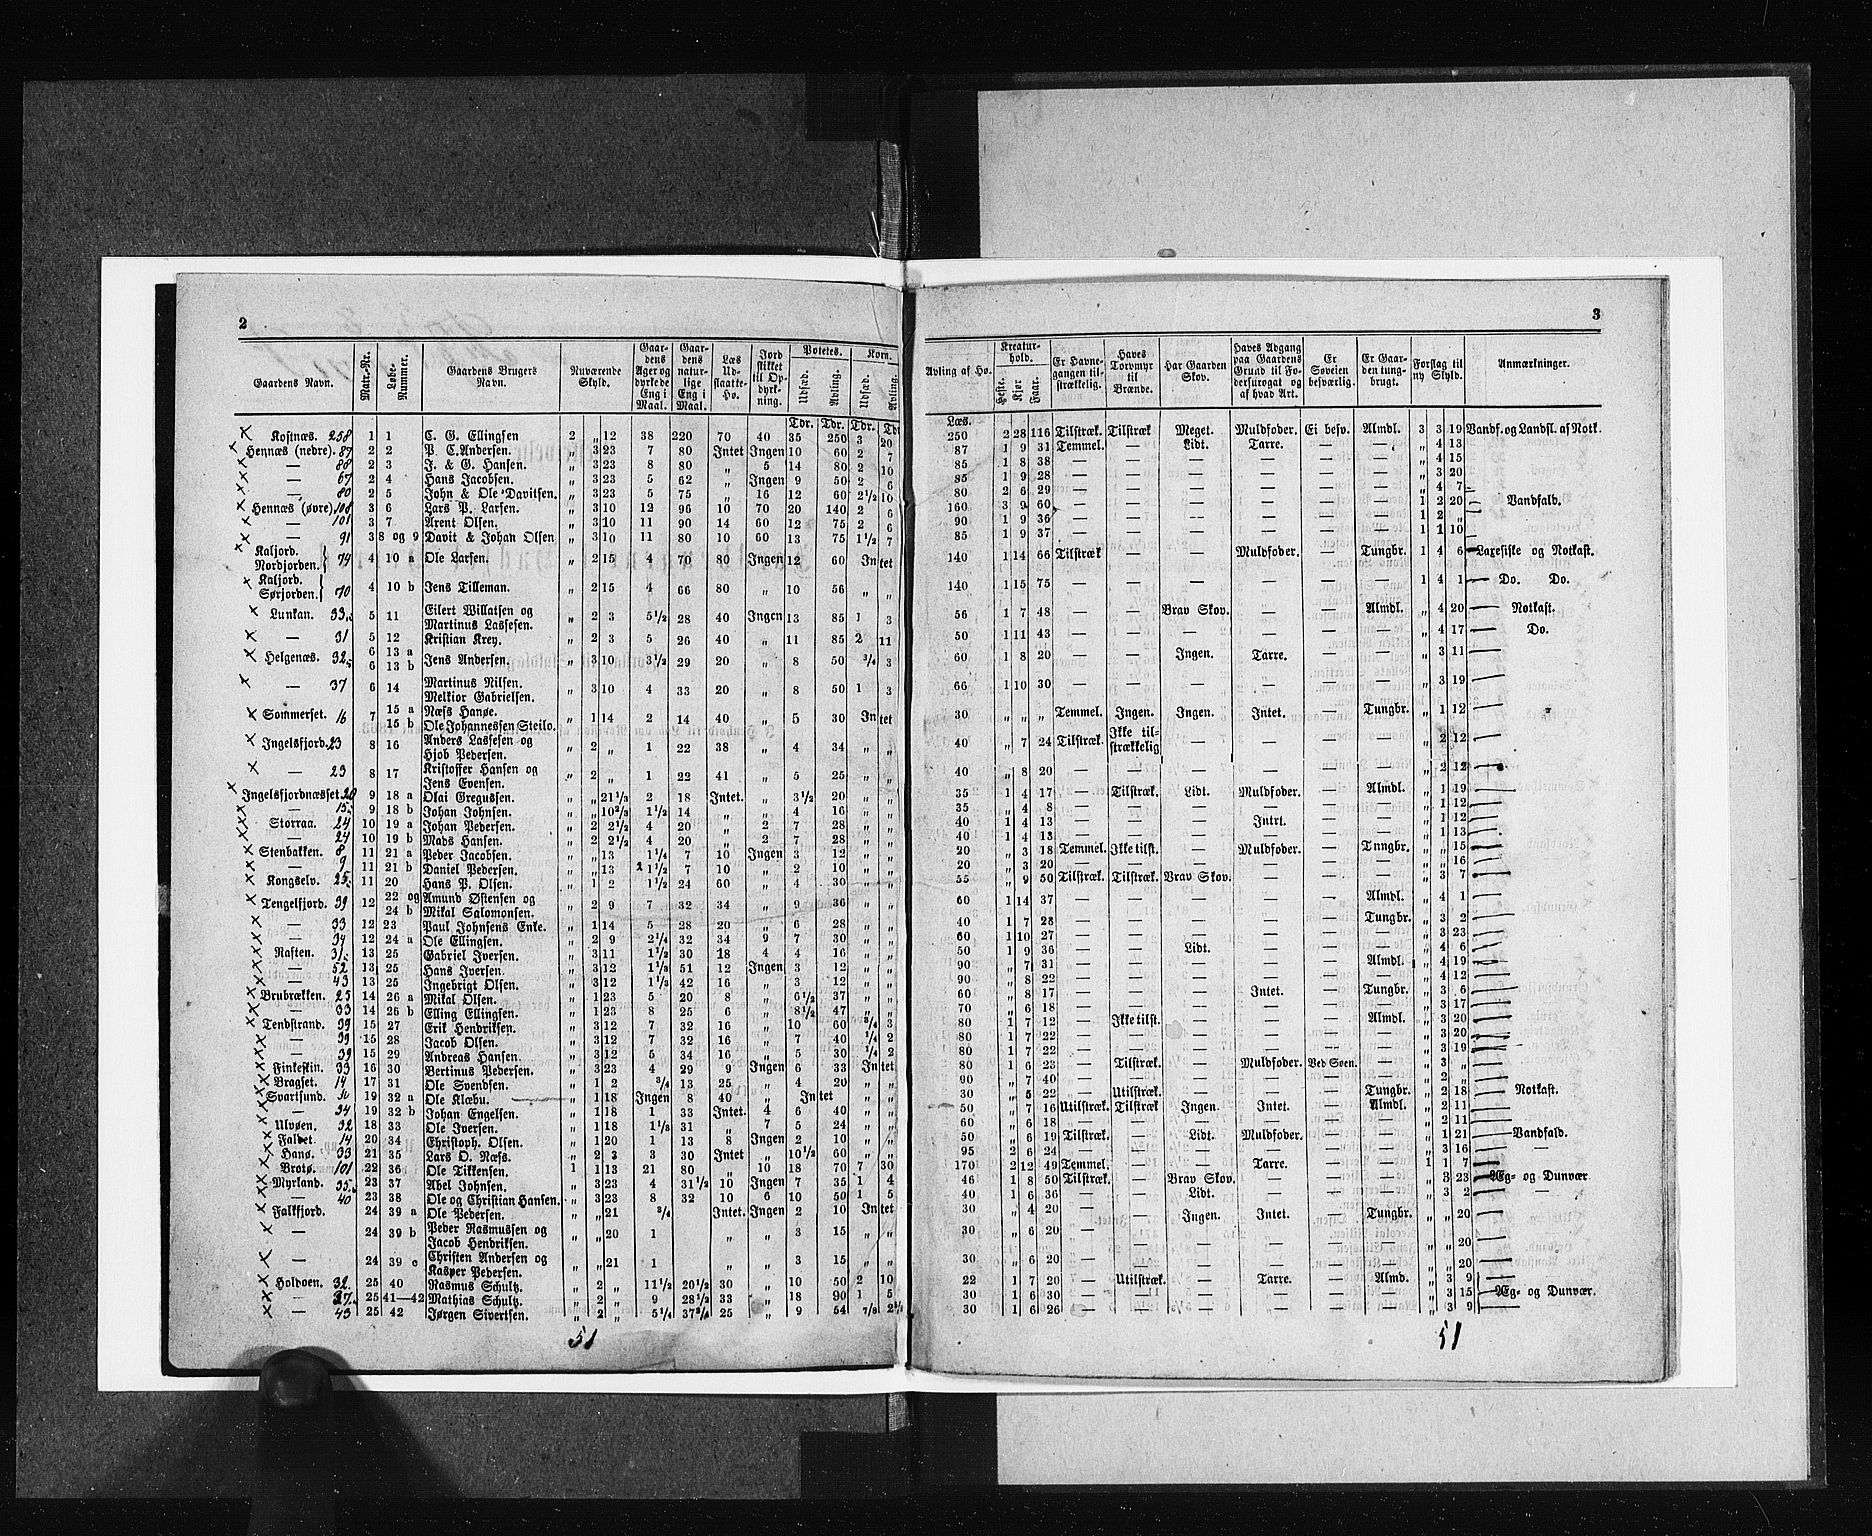 2
Gaardens Navn. Matr.-Nr. Løbe-Nummer. Gaardens Brugers Navn. Nuværende Skyld. Gaardens Ager og dyrkede Eng i Maal. Gaardens naturlige Eng i Maal. Læs Udslaatte-Hø. Jord skikket til Opdyrkning. Potetes. Udsæd. Avling. Korn. Udsæd. Avling.
Tdr. Tdr. Tdr. Tdr
Kostnæs. 258 1 1 C. G. Ellingsen 2 „ 12 38 220 70 40 35 250 3 20
Hennæs (nedre). 87 2 2 P. C. Andersen. „ 3 23 7 80 Intet Ingen 10 60 2 7
— 88 2 3 J. & G. Hansen. „ 3 23 8 80 „ 5 14 80 2 10
— 67 2 4 Hans Jacobsen. „ 3 23 5 62 „ Ingen 9 50 2 6
— 80 2 5 John & Ole Davitsen. „ 3 23 5 75 „ 16 12 60 2 1/2 10
Hennæs (øvre) 108 3 6 Lars P. Larsen. „ 3 10 12 96 10 70 20 140 2 6
— 101 3 7 Arent Olsen. „ 3 10 11 90 14 60 12 75 2 6
— 91 3 8 og 9 Davit & Johan Olsen „ 3 10 11 80 10 60 13 75 1 1/2 7
Kaljord. Nordjorden. 79 4 10 a Ole Larsen. „ 2 15 4 70 80 Ingen 12 60 Intet
Kaljord. Sørjorden. 70 4 10 b Jens Tilleman. „ 2 15 4 66 80 „ 10 56 „ „
Lunkan. 33 5 11 Eilert Willatsen og Martinus Lassesen. „ 2 3 5 1/2 28 40 Ingen 13 85 1 3
— 31 5 12 Kristian Krey. „ 2 3 5 26 40 „ 11 85 2 11
Helgenæs. 32 6 13 a 6 13 b Jens Andersen. „ 3 10 3 1/2 29 20 „ 8 50 3/4 3
— 37 6 14 Martinus Nilsen. Melkior Gabrielsen. „ 3 10 4 33 20 „ 8 50 1 3
Sommerset. 16 7 15 a 15 b Næfs Hanøe. Ole Johannessen Steilo. „ 1 14 2 14 40 „ 5 30 Intet
Ingelsfjord. 23 8 16 Anders Lassesen og Hjob Pedersen. „ 2 „ 1 22 38 „ 4 34 „ „
— 23 8 17 Kristoffer Hansen og Jens Evensen. „ 2 „ 1 22 41 „ 5 25 „ „
Ingelsfjordnæsset 20 9 18 a Olai Gregussen. „ „ 21 1/3 2 18 Intet. „ 3 1/2 20 „ „
— 15 9 18 b Johan Johnsen. „ „ 10 2/3 1 1/2 14 „ „ 4 16 „ „
Storraa. 24 10 19 a Johan Pedersen. „ 2 2 1/2 4 20 „ 2 7 28 „ „
— 24 10 19 b Mads Hansen. „ 2 2 1/2 4 20 „ 2 7 28 „ „
Stenbakken. 8 11 21 a Peder Jacobsen. „ „ 13 1 1/4 7 10 Ingen 3 12 „ „
— 9 11 21 b Daniel Pedersen. „ „ 13 1 1/2 7 10 „ 2 10 „ „
Kongselv. 25 11 20 Hans P. Olsen. „ 1 2 1 1/2 24 60 „ 4 30 „ „
Tengelfjord. 39 12 22 og 24 b Amund Østensen og Mikal Salomonsen. „ 2 9 7 32 34 „ 9 36 „ „
— 33 12 23 Paul Johnsens Enke. „ 1 14 5 28 20 „ 6 28 „ „
— 34 12 24 a Ole Ellingsen. „ 2 9 2 1/4 32 34 9 7 30 „ „
Rasten. 31 13 25 Gabriel Iversen. „ 3 11 1 1/2 30 18 4 4 16 „ „
— 52 13 25 Hans Iversen. „ 3 12 1 1/3 51 12 Ingen 3 12 „ „
— 43 13 25 Ingebrigt Olsen. „ 3 12 1 1/3 42 16 „ 3 12 „ „
Brubrækken. 25 14 26 a Mikal Olsen. „ 1 23 5 20 8 „ 6 1/2 37 „ „
— 33 14 26 b Elling Ellingsen. „ 1 23 8 25 6 „ 8 1/2 47 „ „
Tendstrand. 39 15 27 Erik Hendriksen. „ 3 12 7 32 16 „ 10 60 3/4 3
— 39 15 28 Jacob Olsen. „ 3 12 7 32 16 „ 7 40 1/4 2
— 39 15 29 Andreas Hansen. „ 3 12 5 34 16 „ 5 30 1/4 2
Finkeskin. 33 16 30 Bertinus Pedersen. „ 3 23 4 29 9 Ingen 6 33 Intet
Bragset. 14 17 31 Ole Svendsen. „ 1 2 3/4 13 25 „ 4 20 „ „
Svartsund. 19 32 a Ole Klæbu. „ 1 18 Ingen 8 40 „ Intet „ „
— 34 19 32 b Johan Engelsen. „ 1 18 1 33 Intet. 4 6 40 „ „
Ulvøen. 32 18 33 Ole Iversen. „ 1 18 1 1/3 31 „ 7 5 24 „ „
Faldet. 14 20 34 Christoph. Olsen. „ 1 20 1 13 8 Ingen 2 10 „ „
Hanø. 33 21 35 Lars O. Næss. „ 2 3 3 30 Intet „ 10 1/2 60 „ „
Brotø. 101 22 36 Ole Tikkensen. 1 1 13 21 80 „ 10 18 70 7 30
Myrland. 35 23 37 Abel Johnsen. „ 3 23 4 31 1/2 10 Ingen 7 35 1 4
— 40 23 38 Ole og Christian Hansen. „ 3 23 8 32 10 6 10 50 1 5
Falkfjord. 24 39 a Ole Pedersen. „ „ 21 3/4 Intet. Ingen 2 10 Intet
— 24 39 b Peder Rasmussen og Jacob Hendriksen. „ „ 20 1 „ „ 3 15 „ „
— 24 39 c Christen Andersen og Kasper Pedersen. „ „ 21 1 „ „ 3 15 „ „
Holdøen. 32 25 40 Rasmus Schultz. „ 2 „ 11 1/2 20 1/2 30 „ 10 50 2 10
— 37 25 41—42 Mathias Schultz. „ 2 „ 9 28 1/2 33 „ 18 90 1 5
— 43 25 42 Jørgen Sivertsen. „ 2 „ 5 1/4 37 3/4 25 „ 9 54 7/8 2 1/2
51
3
Avling af Hø. Kreaturhold. Heste. Kjør Faar. Er Havnegangen tilstrækkelig. Haves Torvmyr til Brænde. Har Gaarden Skov. Haves Adgang paa Gaardens Grund til Fodersurogat og af hvad Art. Er Søveien besværlig. Er Gaarden tungbrugt. Forslag til ny Skyld. Anmærkninger.
Læs.
250 2 28 116 Tilstræk. Tilstræk Meget. Muldfoder. Ei besv. Almdl. 3 3 19 Vandf. og Landsl. af Notk.
87 1 9 31 Temmel. — Lidt. Tarre. — — „ 4 13
85 1 8 38 — — — — — — „ 4 15
85 1 9 28 — — — — — — „ 3 20
80 2 6 29 — — — — — — „ 4 7
160 3 9 60 — — — — — — 1 2 20 Vandfald.
90 1 9 36 — — — — — — 1 2 „
85 1 9 37 — — — — — — 1 1 10
140 1 14 66 Tilstræk — — Muldfoder. — Tungbr. 1 4 6 Laxefiske og Notkast.
140 1 15 75 — — — — — — 1 4 1 Do. Do.
56 1 7 48 — — Brav Skov. — — Almdl. „ 4 20 Notkast.
50 1 11 43 — — — — — — „ 4 17 Do.
60 1 8 20 — — Ingen. Tarre. — — „ 3 11
66 1 10 30 — — — — — — „ 3 19
30 „ „ „ Temmel. Ingen. Ingen. Intet. — Tungbr. „ 1 12
40 „ 7 24 Tilstræk. Ikke tilstrækkelig — — — — „ 2 12
40 „ 8 20 — — — — — — „ 2 12
35 1 4 17 — Tilstræk. Lidt. Muldfoder. — Almdl. „ 1 19
35 „ 4 8 — — — — — — „ 1 12
40 1 4 13 — — — Intrt. — — „ 1 12
40 1 4 13 — — — — — — „ 1 13
20 „ 3 18 Temmel. Ikke tilst. — Muldfoder. — Tnngbr. „ „ 15
20 „ 3 20 — — — — — — „ „ 16
55 „ 9 50 Tilstræk. Tilstræk. Brav Skov. — — — „ 3 7
60 1 14 37 — — — — — Almdl. „ 4 1
40 1 7 28 — — — — — Tungbr. „ 3 2
60 1 10 27 — — — — — — „ 3 23
50 1 9 36 — — Lidt. — — — „ 4 6
90 „ 7 31 — — — — — Almdl. „ 4 19
90 „ 8 22 — — — — — — „ 4 12
60 „ 8 17 — — — Intet. — Tungbr. „ 3 6
70 „ 6 18 — — — — — — „ 3 17
80 1 7 12 — Ikke tilst. — — — Almdl. „ 3 20
80 1 7 22 — — — — — — „ 3 20
80 1 7 22 — — — — — — „ 3 19
80 1 6 23 — Tilstræk. — Muldfoder. Ved Søen. — „ 3 „
90 „ 7 40 — — — — — — „ 2 „
30 „ 5 22 — Utilstræk. — — — Tungbr. „ 2 18 Notkast.
50 „ 7 16 Utilstræk. Tilstræk Ingen. Intet. — Almdl. „ 2 11
60 „ 6 18 — — — — — — „ 2 11
50 „ 6 19 Tilstræk. — Lidt. Muldfoder. — — „ 1 21 Vandfald.
95 2 6 24 — — — — — — „ 3 16
170 2 12 49 Temmel. — — Tarre. — — 1 1 7
46 1 8 50 Tilstræk. — Brav Skov. — — — „ 3 23 Æg- og Dunvær
40 1 6 36 — — Lidt. — — — „ 3 2 —
30 „ 4 20 — — Ingen. Intet. — Tungbr. „ „ 20
30 „ 6 20 — — — — — — „ „ 20
30 „ 6 20 — — — — — — „ „ 20
22 1 7 20 — Utilstræk. — Tarre. — Almd. „ 3 9
30 1 6 30 — — — — — — „ 3 15 Æg- og Dunvær.
30 1 6 26 — — — — — — „ 3 9
51